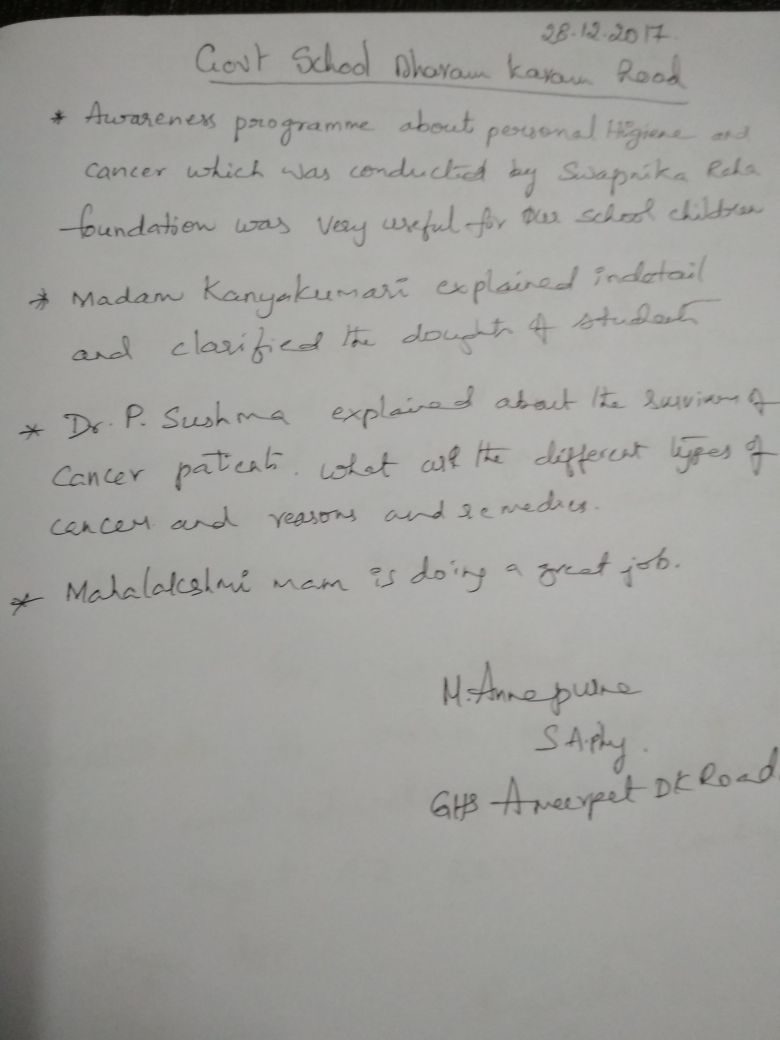 28.12.2017
Govt School Dharam Karam Road
* Awareness programme about personal Higiene and
cancer which was conducted by Swapnika Reha
foundation was very useful for our school children
* Madam Kanyakumari explained indetail
and clarified the doughts of students
* Dr. P. Sushma explained about the of
Cancer patients. what are the different types of
cancer and reasons and remedies.
* Mahalakshmi mam is doing a great job.
M. Annapurna
S A. phy.
GHS Ameerpet DK Road